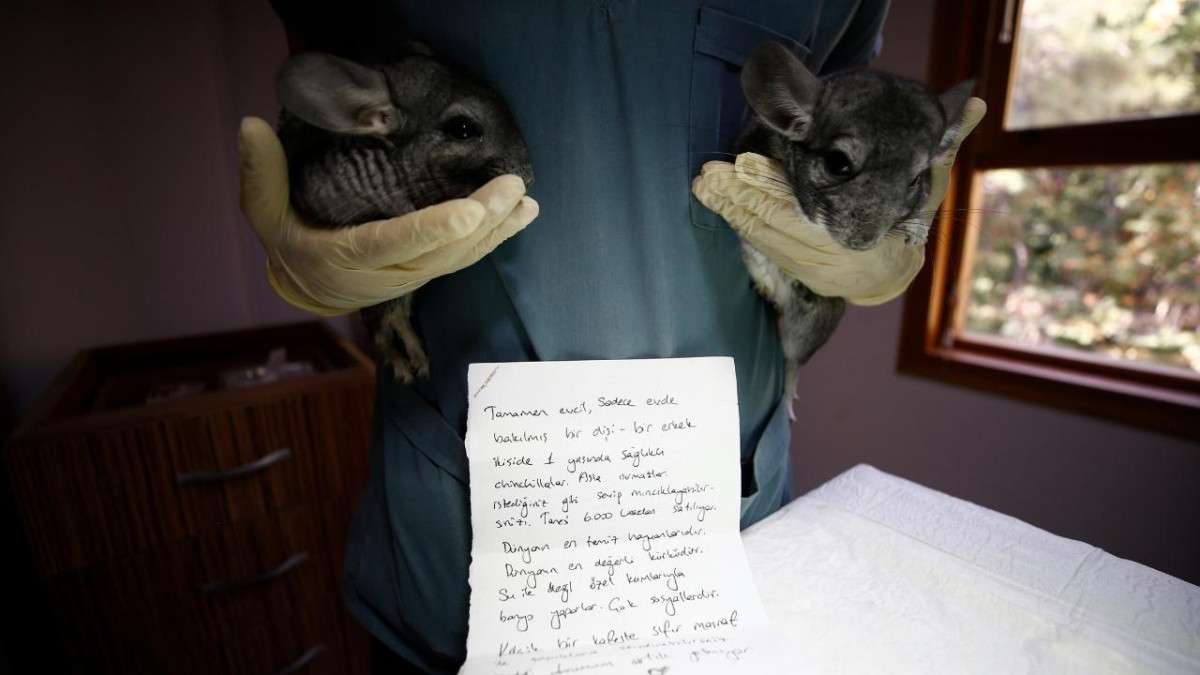 Tamamen evcil, Sadece evde
bakılmış bir dişi - bir erkek
ikiside 1 yaşında sağlıklı
chinchillalar. Asla ısırmazlar.
istediğiniz gibi sevip mıncıklayabilir-
siniz. Tanesi 6.000 liradan satılıyor.
Dünyanın en temiz hayvanlarıdır.
Dünyanın en değerli kürküdür.
Su ile değil özel kumlarıyla
banyo yaparlar. Çok sosyallerdir.
Küçük bir kafeste sıfır masraf